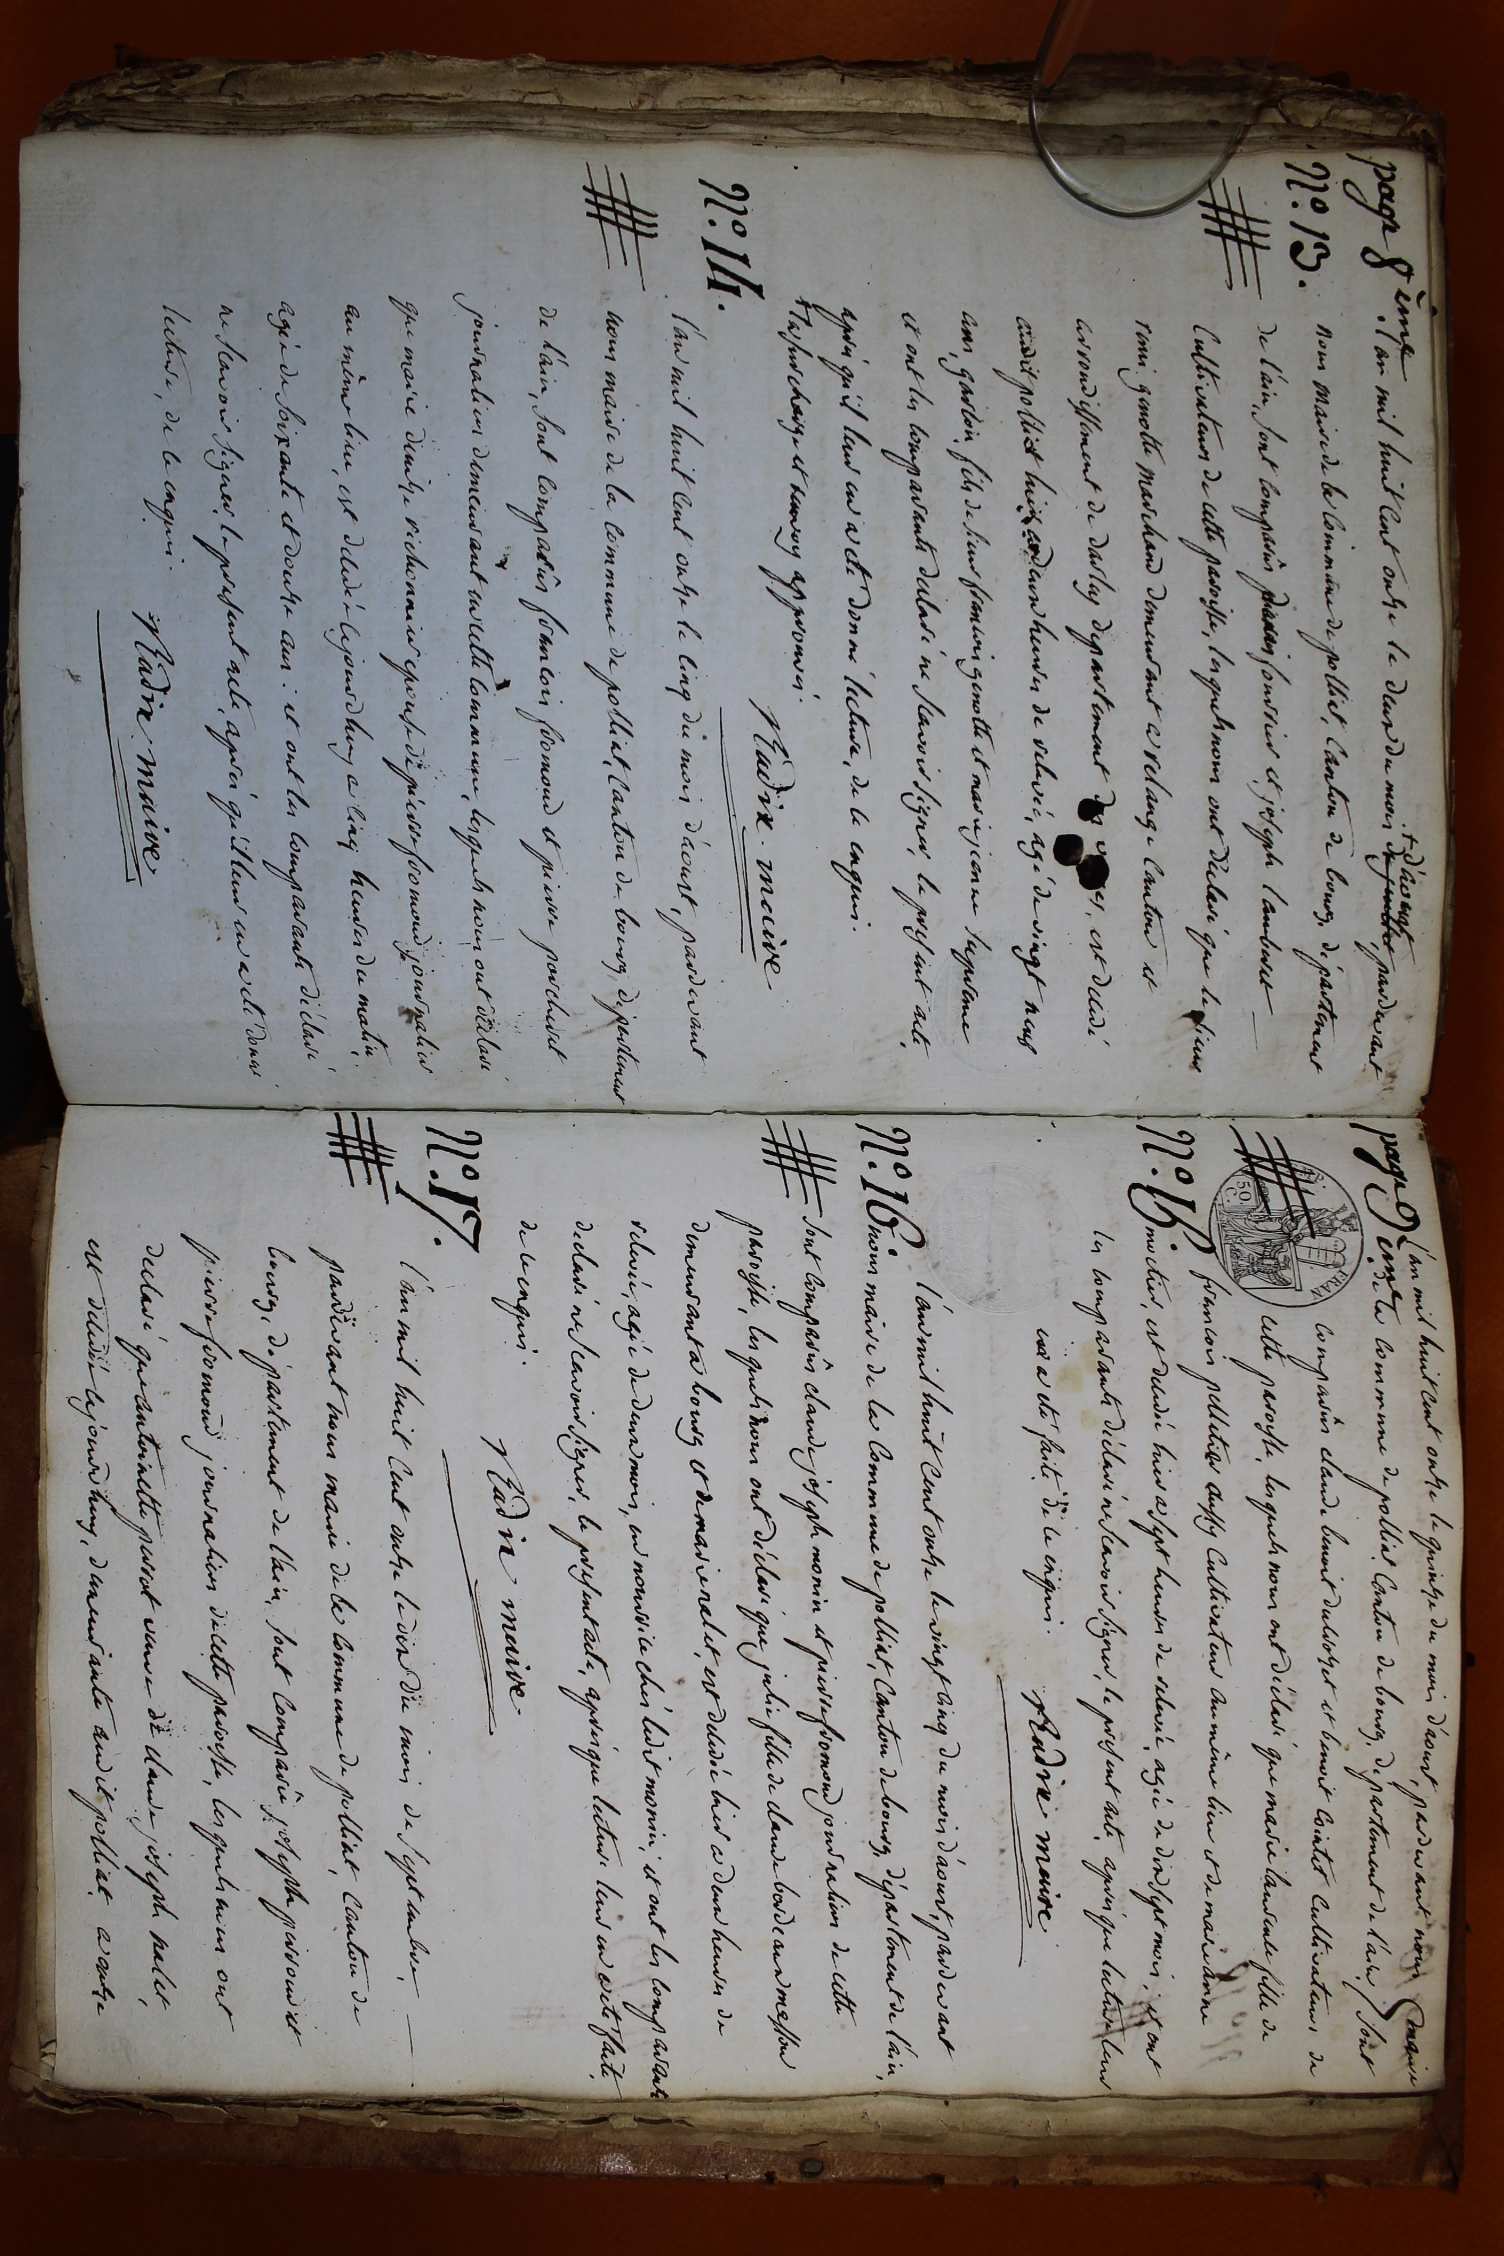 page 8ème
N.° 13.
L'an mil huit cent onze le deux du mois de juillet pardevant
+ d'aoust
nous maire de la commune de polliat, canton de bourg, département
de l'ain, sont comparûs fournier et joseph lambert
cultivateurs de cette paroisse, lesquels nous ont déclaré que le sieur
remi genolte marchand demeurant a relange canton et
arrondissement de darley département des est décédé
audit polliat hier a deux heures de relevée, agé de vingt neuf
ans, garçon, fils de sieur genolte et marie jeanne
et ont les comparants déclaré ne scavoir signer, le présent acte,
après qu'il leur en a eté donné lecture, de ce enquis.
+ la surcharge et renvoy approuvés
Nadin. maire
N.° 14.
L'an mil huit cent onze le cinq du mois d'aoust, pardevant
nous maire de la commune de polliat, canton de bourg, département
de l'ain, sont comparûs françois fromond et pierre porcheret
journaliers demeurant en cette commune, lesquels nous ont déclaré
que marie denise richonnier epouse de pierre fromond, journalier
au même lieu, est décédée cejourdhuy a cinq heures du matin,
agée de soixante et douze ans : et ont les comparants déclaré
ne scavoir signer, le présent acte, après qu'il leur en a eté donné
lecture, de ce enquis.
Nadin. maire
page 9ème
50 C.
L'an mil huit cent onze le quinze du mois d'aoust, pardevant nous maire
de la commune de polliat canton de bourg, département de l'ain, sont
comparûs claude benoit duliorze et benoit cointet cultivateurs de
cette paroisse, lesquels nous ont déclaré que marie laurente fille de
N.° 15.
françois pelletier aussy cultivateur au même lieu et de marianne
moctier, est décédée hier a sept heures de relevée, agée de dix sept mois, et ont
les comparants déclaré ne scavoir signer, le présent acte, après que lecture leur
en a eté faite, de ce enquis.
Nadin maire
N.° 16
L'an mil huit cent onze le vingt cinq du mois d'aoust, pardevant
nous maire de la commune de polliat, canton de bourg, département de l'ain,
sont comparûs claude joseph monin et pierre fromond journaliers de cette
paroisse, lesquels nous ont déclaré que julie fille de claude bordeaux messon
demeurant a bourg et de marie ralet, est décédée hier a deux heures de
relevée, agée de deux mois, en nourrice chés ledit monin, et ont les comparants
déclaré ne scavoir signer, le présent acte, après que lecture leur en a eté faite,
de ce enquis.
Nadin maire
N.° 17.
L'an mil huit cent onze le dix du mois de septembre,
pardevant nous maire de la commune de polliat, canton de
bourg, département de l'ain, sont comparûs joseph perroud et
pierre fromond journaliers de cette paroisse, lesquels nous ont
déclaré que antoinette perrot veuve de claude joseph ralet,
est décédée cejourdhuy, demeurante audit polliat a onze